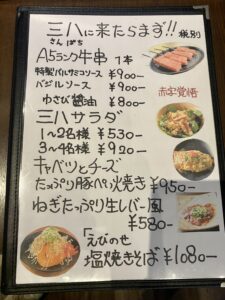 三八に来たらまず!! 税別
さんぱち
A5ランク牛串 1本
特製バルサミコソース ¥900-
バジルソース ¥900-
ゆさび醤油 ¥800-
赤字覚悟
三八サラダ
1〜2名様 ¥530-
3〜4名様 ¥920-
キャベツとチーズ
たっぷり豚ぺい焼き ¥950-
ねぎたっぷり生レバー風
¥580-
「えびのせ
塩焼きそば ¥1080-